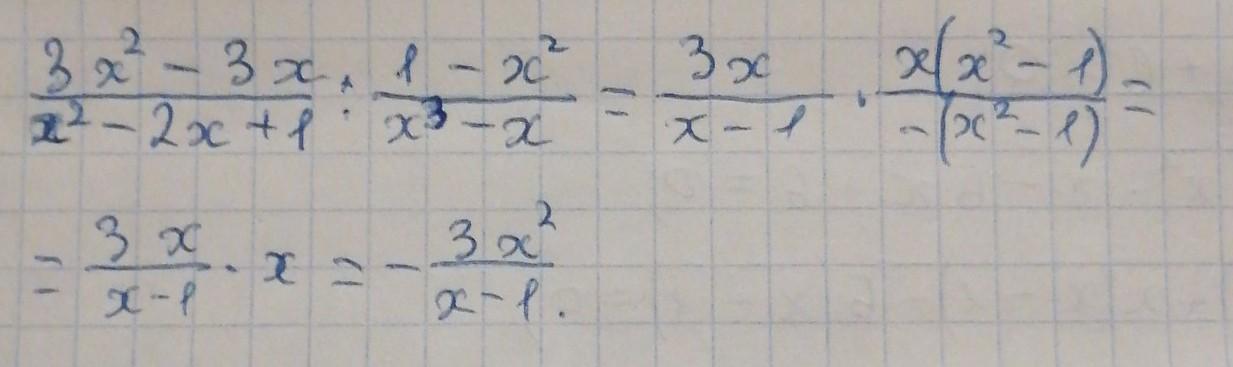 \frac{3x^2 - 3x}{x^2 - 2x + 1} : \frac{1 - x^2}{x^3 - x} = \frac{3x}{x - 1} \cdot \frac{x(x^2 - 1)}{-(x^2 - 1)} =
= \frac{3x}{x - 1} \cdot x = -\frac{3x^2}{x - 1}.